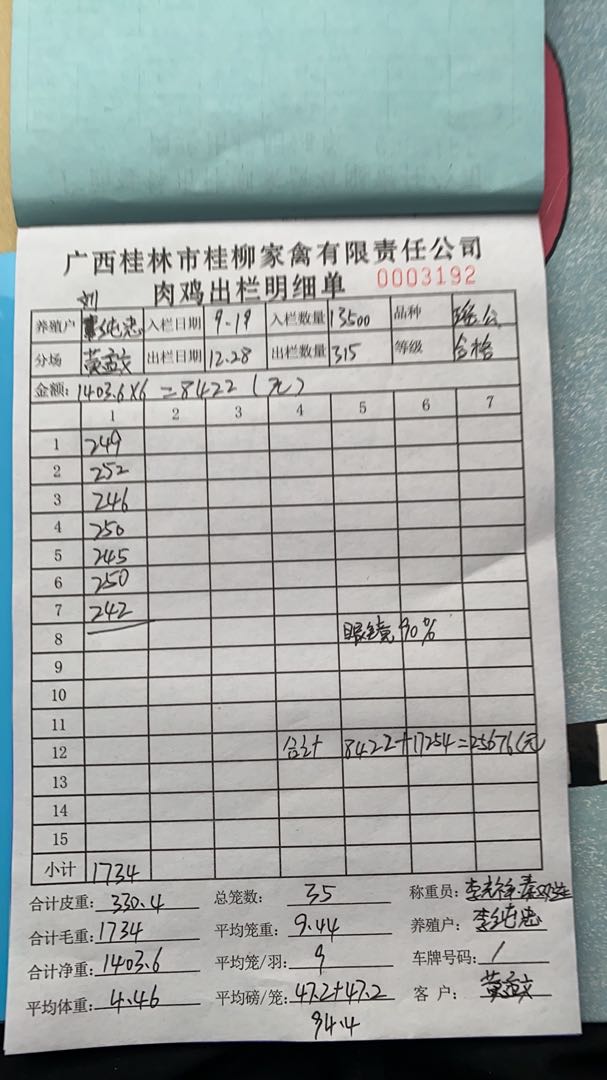 广西桂林市桂柳家禽有限责任公司
肉鸡出栏明细单 0003192
刘
养殖户 纯忠 入栏日期 9.19 入栏数量 13500 品种 瑶公
分场 黄孟文 出栏日期 12.28 出栏数量 315 等级 合格
金额: 1403.6×6=8422(元)
1 2 3 4 5 6 7
1 249
2 252
3 246
4 250
5 245
6 250
7 242
8 眼镜 90%
9
10
11
12 合计 8422+17254=25676(元)
13
14
15
小计 1734
合计皮重: 330.4 总笼数: 35 称重员: 李
合计毛重: 1734 平均笼重: 9.44 养殖户: 李纯忠
合计净重: 1403.6 平均笼/羽: 9 车牌号码: /
平均体重: 4.46 平均磅/笼: 47.2+47.2 客 户: 黄孟文
94.4